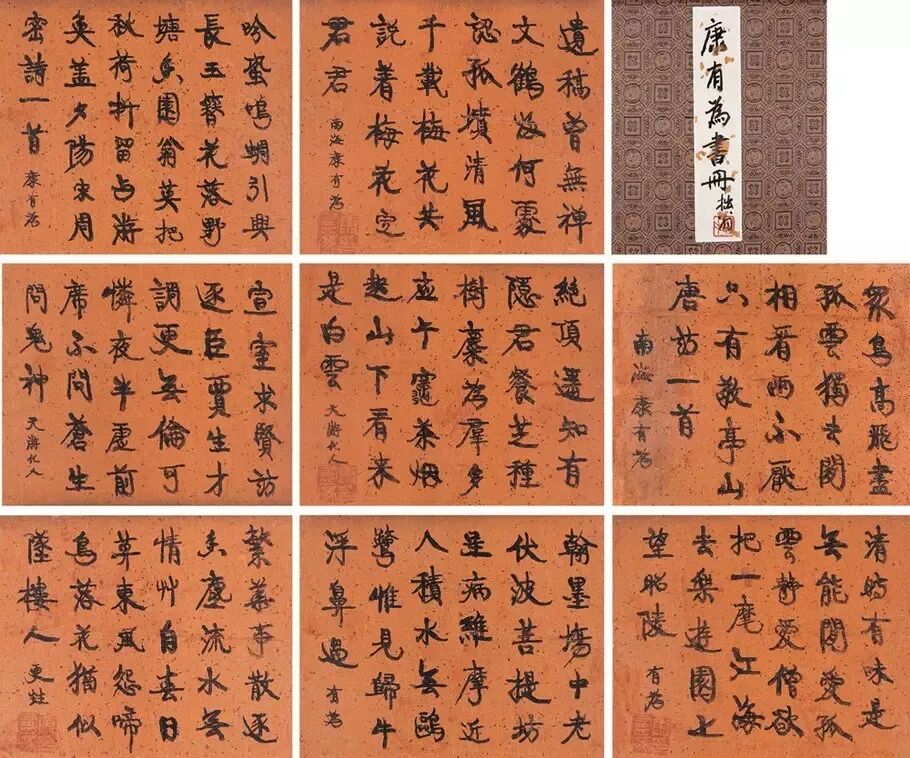 吟蛩鳴蜩引興
長玉簪花落野
塘香園翁莫把
秋荷折留与游
魚蓋夕陽宋周
密詩一首 康有為
遺稿曾無禪
文鶴歸何處
認孤墳清風
千載梅花共
説着梅花定
君君 南海康有為
康有為書冊
宣室求賢訪
逐臣賈生才
調更无倫可
憐夜半虛前
席不問蒼生
問鬼神 天游化人
絶頂遥知有
隱君餐芝種
樹麋為羣多
應午竈茶烟
起山下看来
是白雲 天游化人
眾鳥高飛盡
孤雲獨去閒
相看兩不厭
只有敬亭山
唐詩一首
南海康有為
繁華事散逐
香塵流水无
情艸自春日
莫東風怨啼
鳥落花猶似
墜樓人 更甡
翰墨塲中老
伏波菩提坊
里病維摩近
人積水无鷗
鷺惟見歸牛
浮鼻過 有為
清時有味是
无能閒愛孤
雲靜愛僧欲
把一麾江海
去樂遊園上
望昭陵 有為